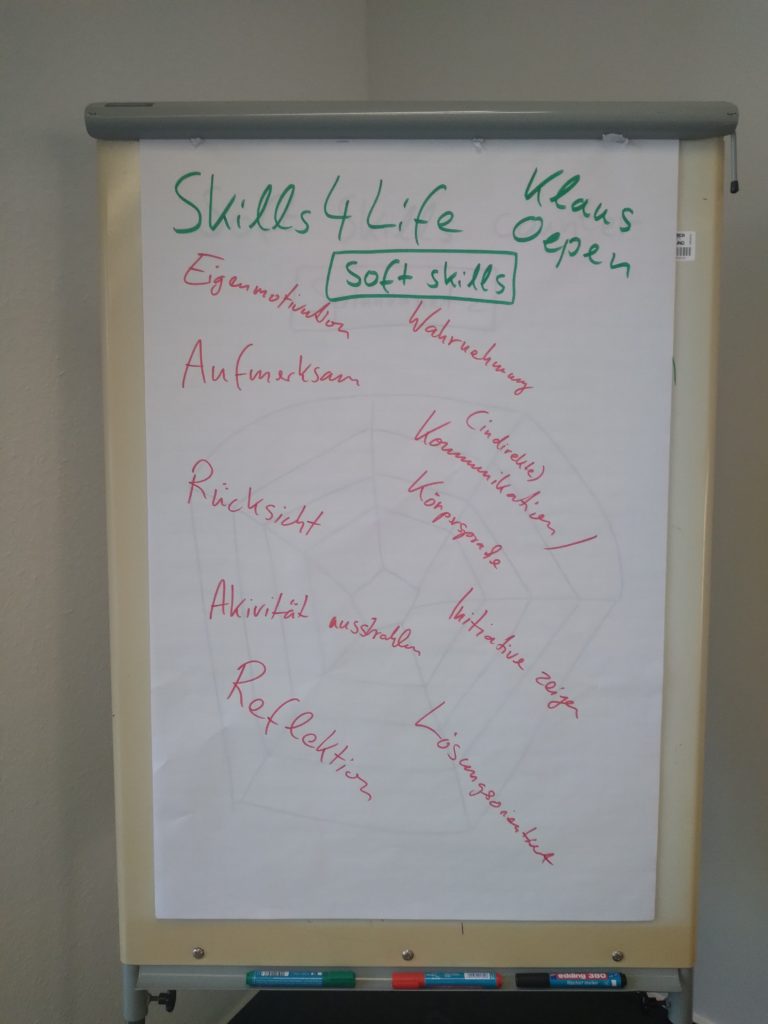 Skills 4 Life
Klaus
Oepen
Soft skills
Eigenmotivation
Wahrnehmung
Aufmerksam
(indirekte)
Kommunikation /
Körpersprache
Rücksicht
Akivität ausstrahlen
Initiative zeigen
Reflektion
Lösungsorientiert
edding 380